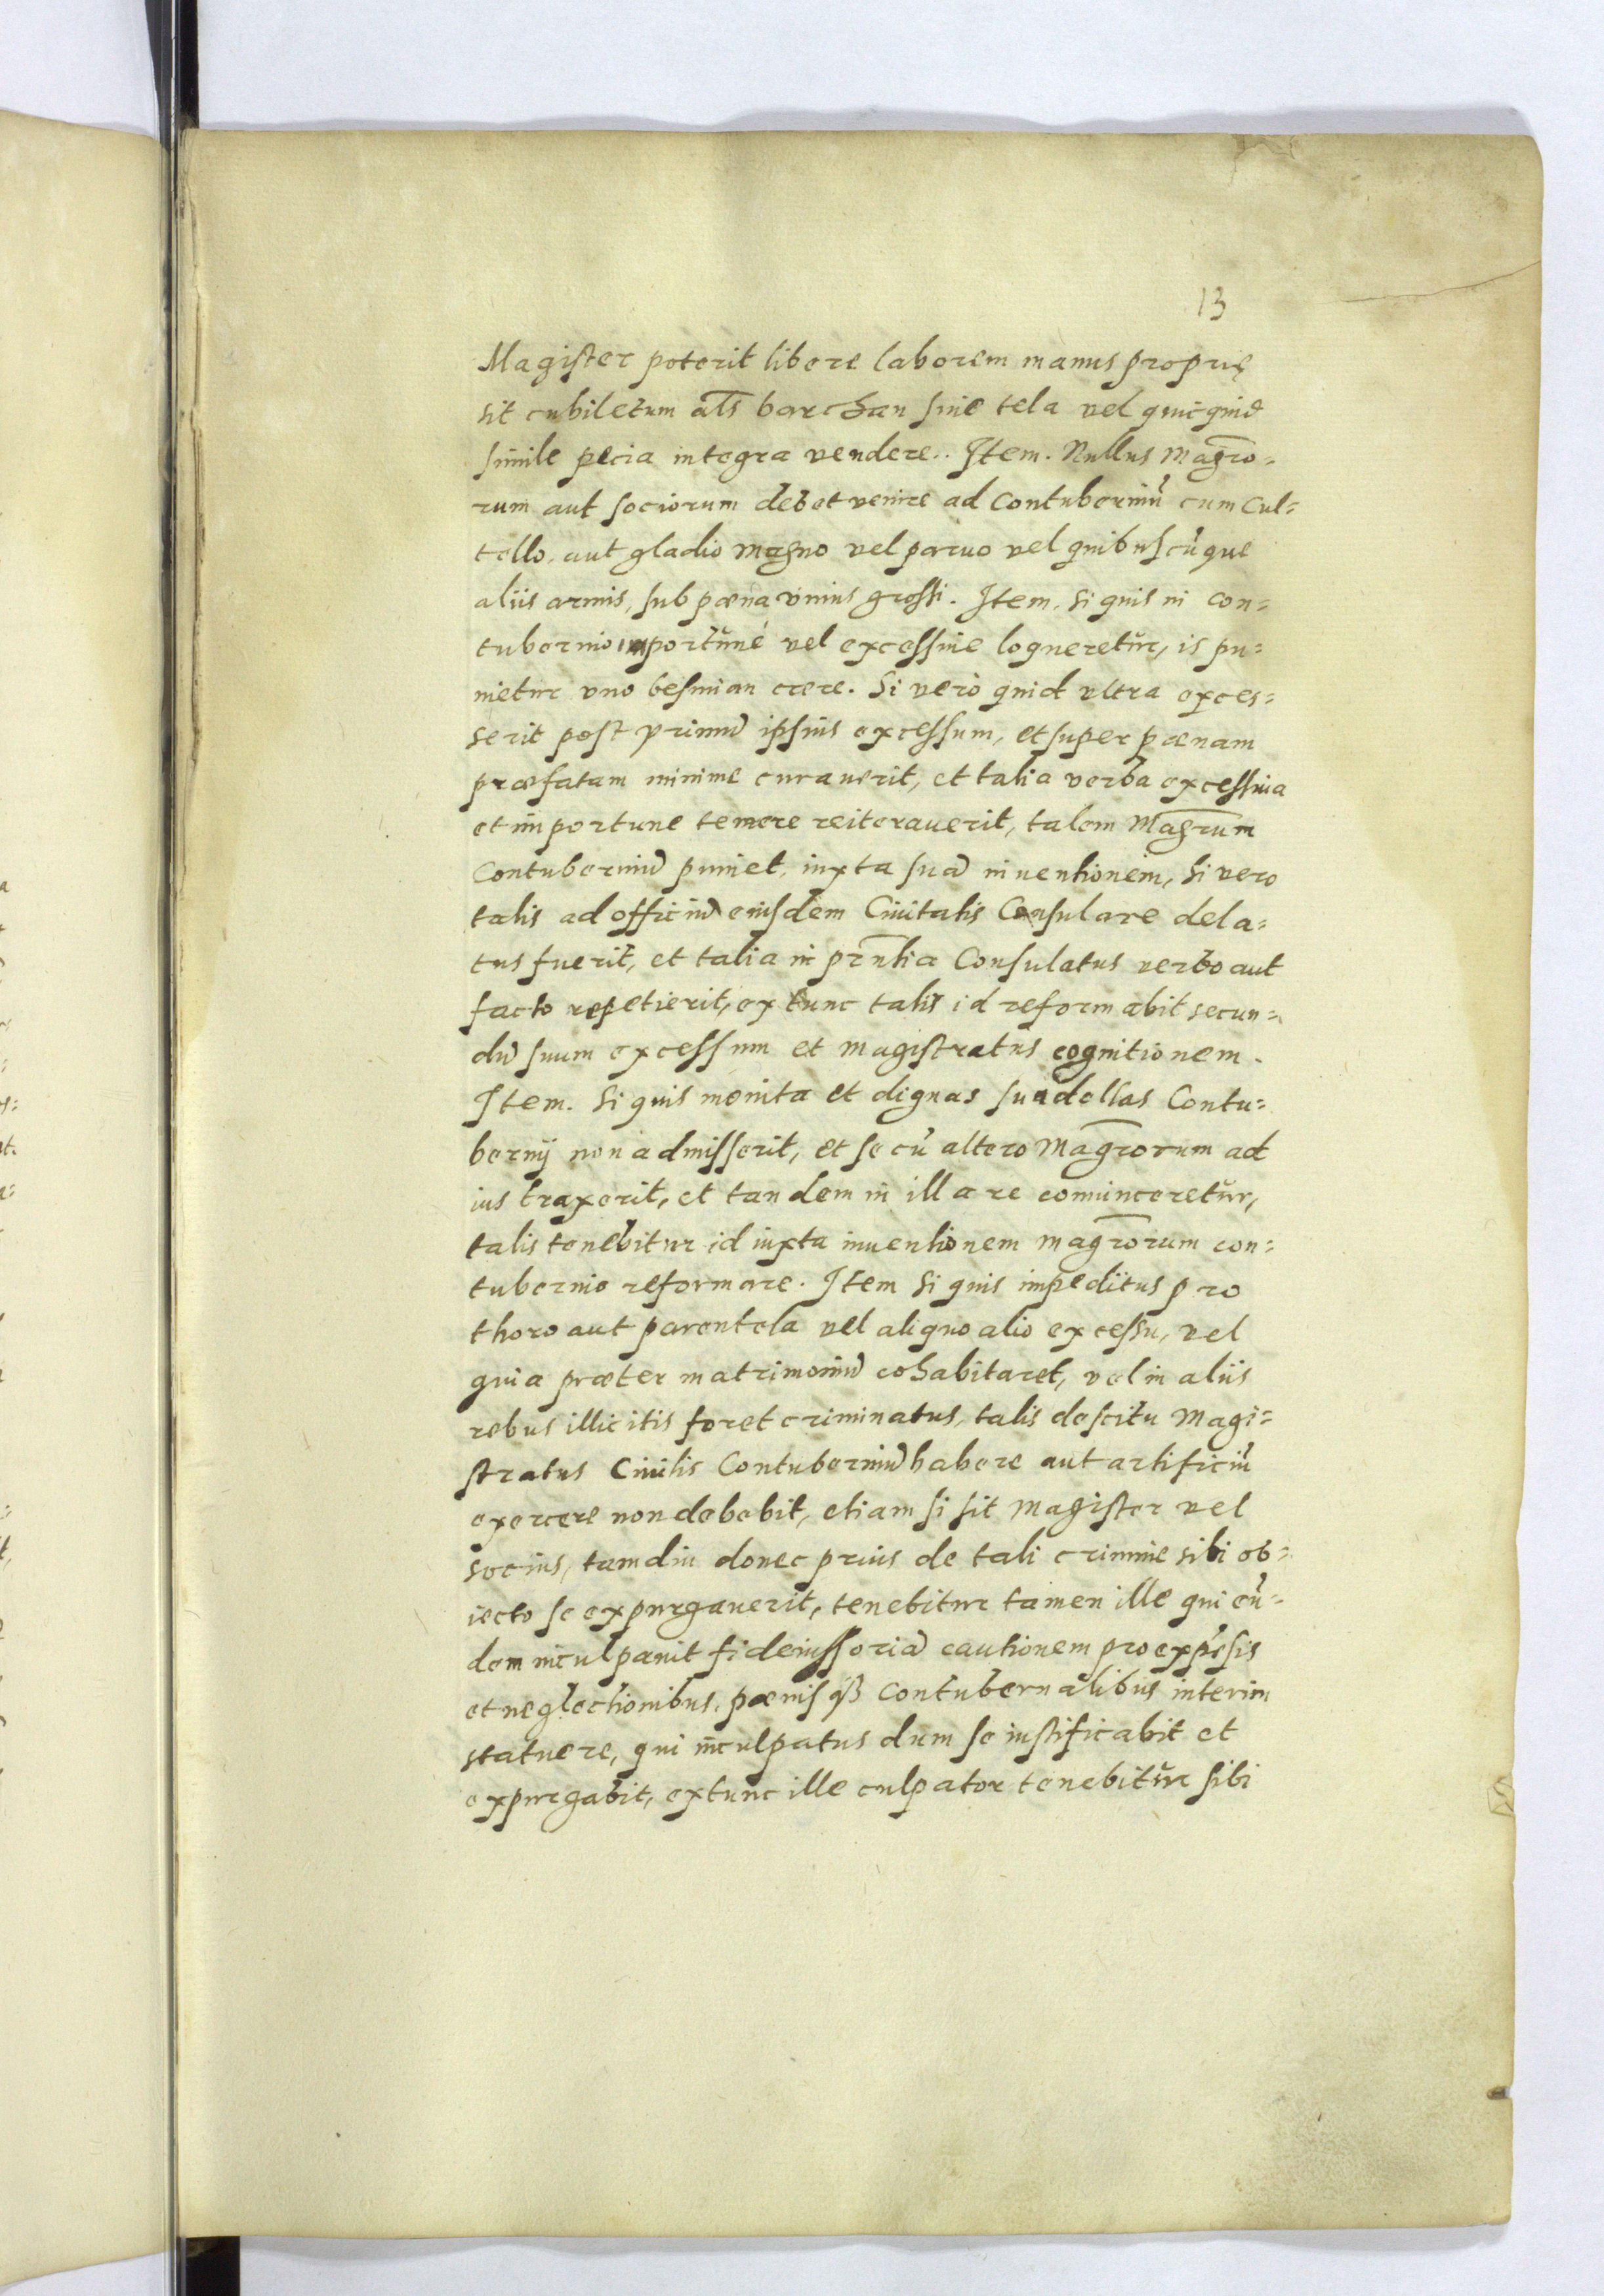 13
Magister poterit libere laborem manus proprię
sit cubiletum al͞s barchan siue tela vel quicquid
simile pecia integra vendere. Item. Nullus Mag͞ro-
rum aut sociorum debet venire ad Contuberniū cum Cul=
tello, aut gladio magno vel paruo vel quibuscūque
aliis armis, sub pœna vnius grossi. Item, si quis in con=
tubernio importŭné vel excessiue loqueretŭr, is pu=
nietur vno besmian cere. Si verò quid vltra exces=
serit post primū ipsius excessum, et super pœnam
præfatam minime curauerit, et talia verba excessiua
et importune temere reiterauerit, talem Mag͞rum
Contuberniū puniet, iuxta suā inuentionem, Si vero
talis ad officiū eiusdem Ciuitatis Consulare dela=
tus fuerit, et talia in pr͞ntia Consulatus verbo aut
facto repetierit, ex tunc talis id reformabit secun=
dū suum excessum et Magistratus cognitionem.
Item. Si quis monita et dignas suadellas Contu=
bernij non admisserit, et se cū altero Mag͞rorum ad
ius traxerit, et tandem in illa re conuinceretŭr,
talis tenebitur id iuxta inuentionem mag͞rorum con=
tubernio reformare. Item si quis impeditus pro
thoro aut parentela vel aliquo alio excessu, vel
quia præter matrimoniū cohabitaret, vel in aliis
rebus illicitis foret criminatus, talis de scitu Magi=
stratus Ciuilis Contuberniū habere aut artificiū
exercere non debebit, etiam si sit Magister vel
socius, tamdiu donec prius de tali crimine sibi ob=
iecto se expurgauerit, tenebitur tamen ille qui eū=
dem inculpauit fideiussoriā cautionem pro expēsis
et neglectionibus, pœnisqȝ Contubernalibus interim
statuere, qui inculpatus dum se iustificabit et
expurgabit, extunc ille culpator tenebitŭr sibi